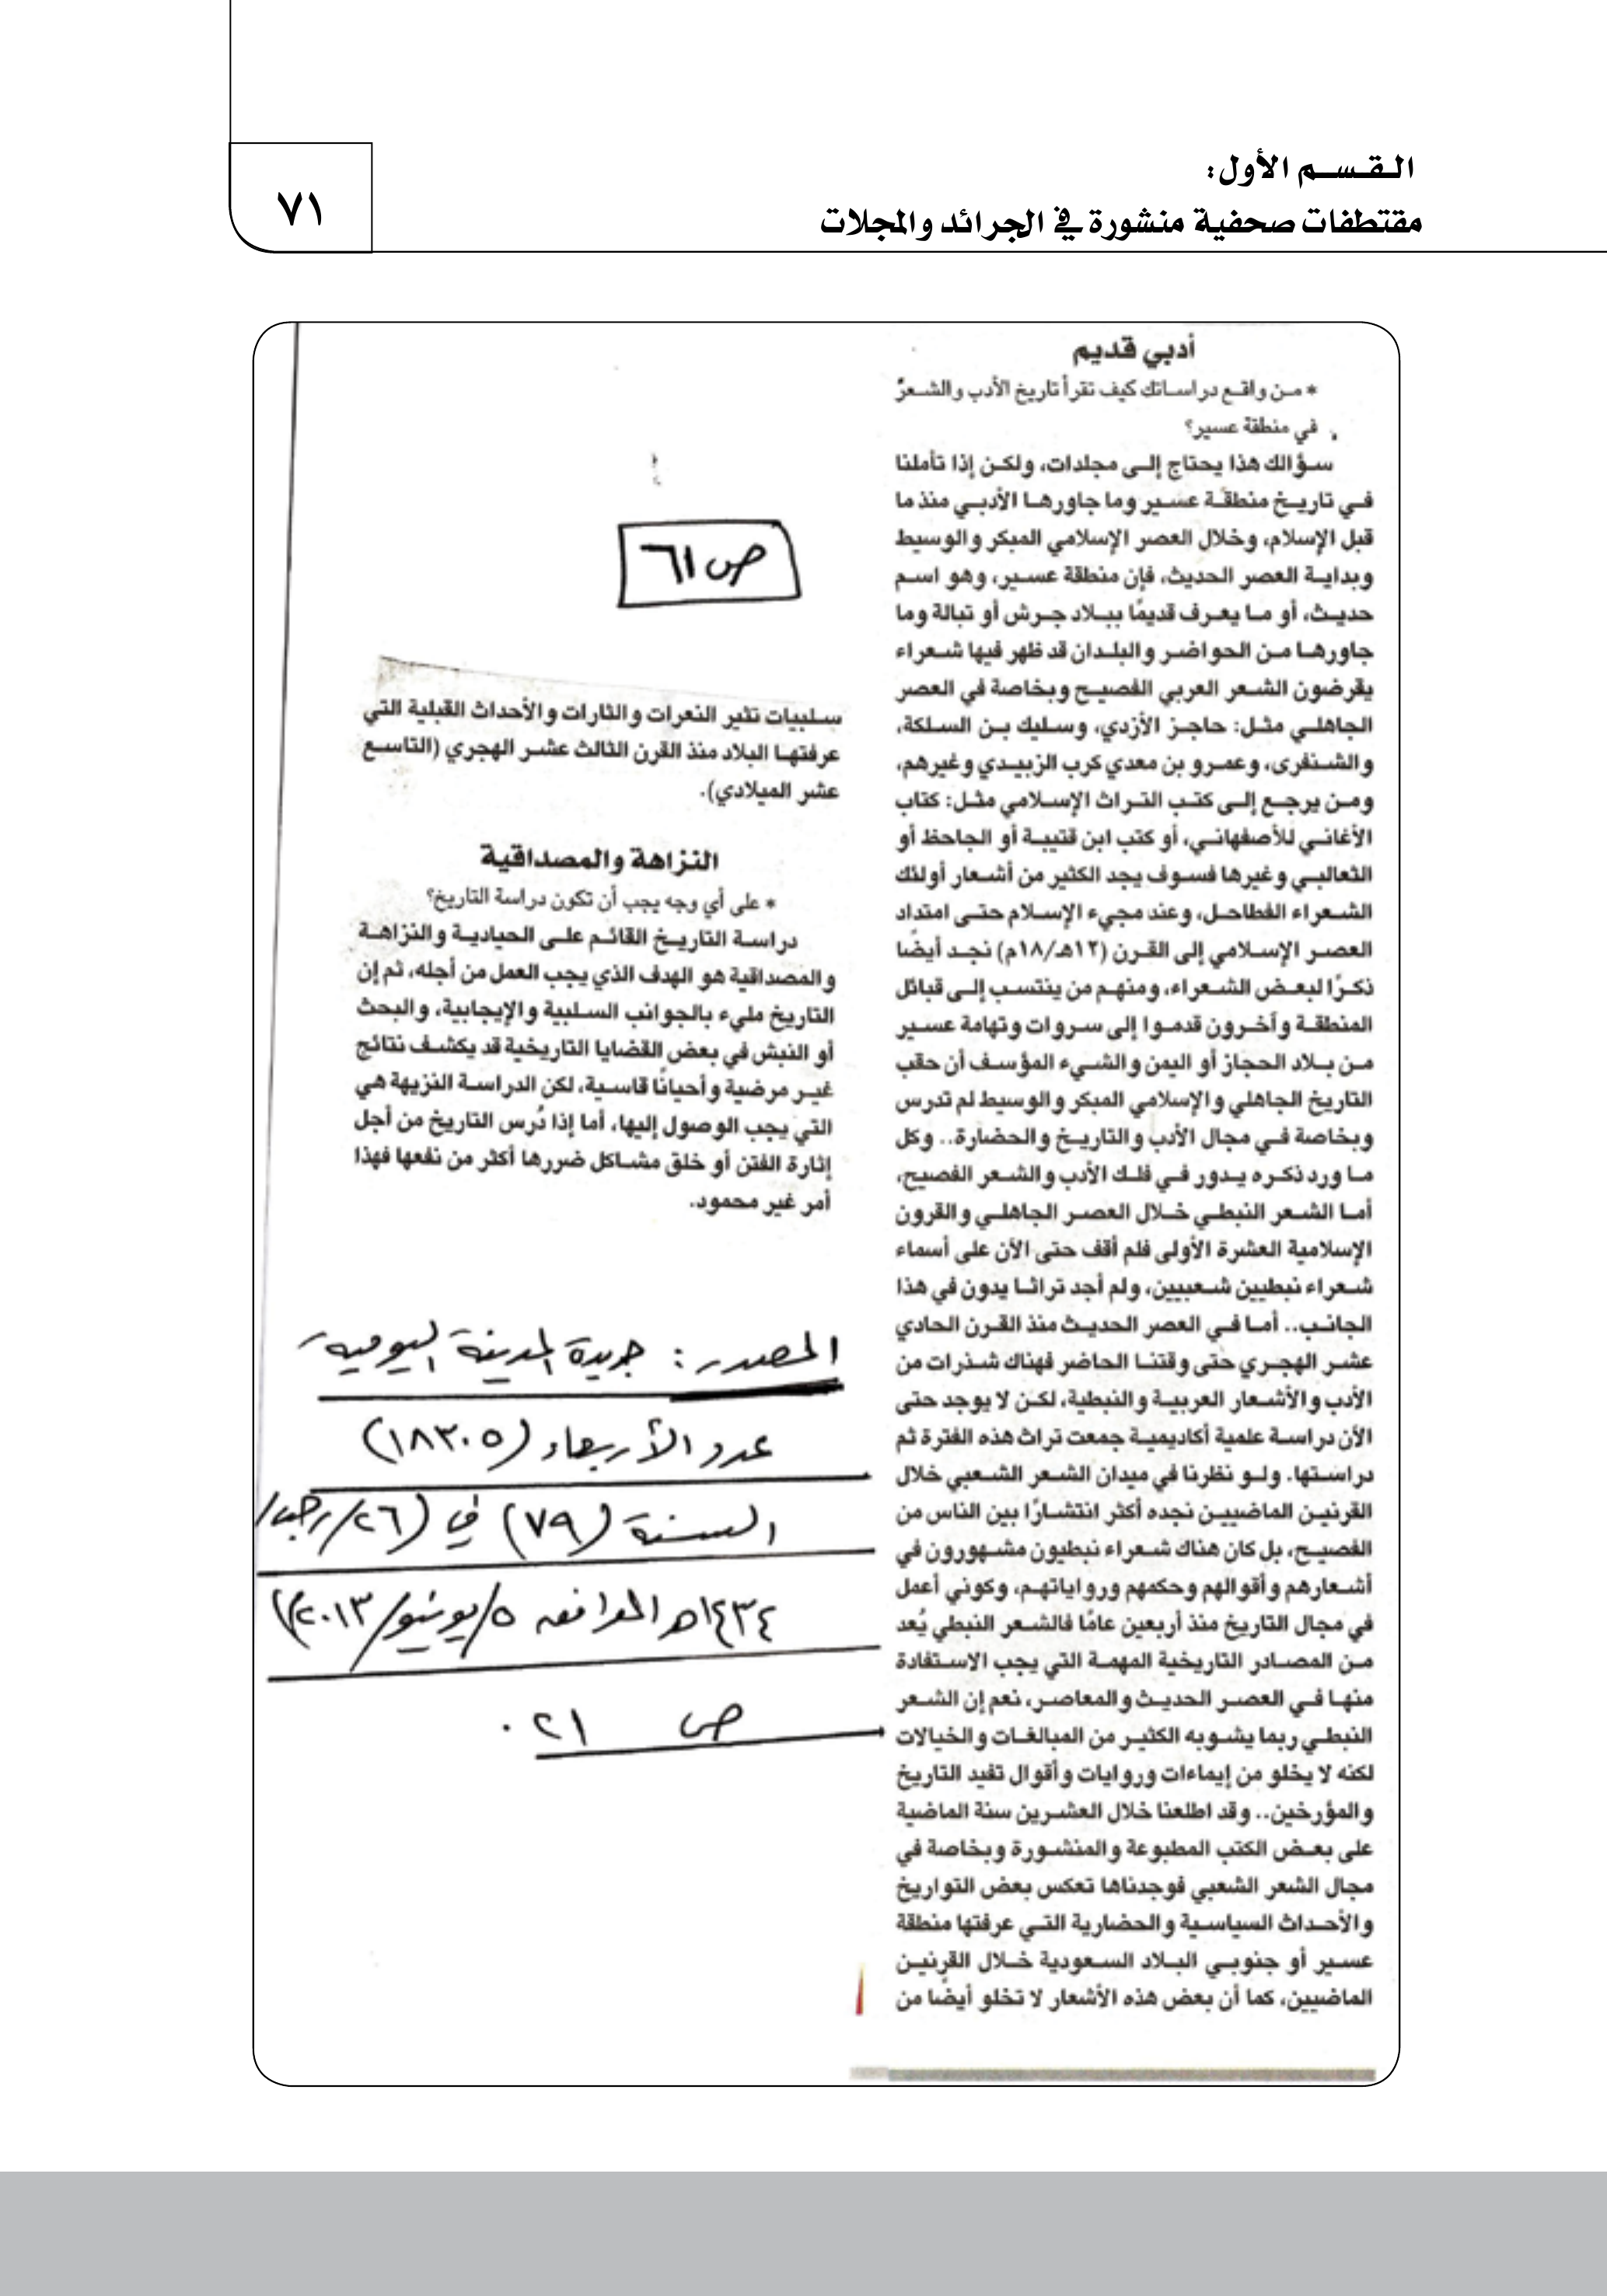 القسم الأول:
مقتطفات صحفية منشورة في الجرائد والمجلات
٧١
أدبي قديم
* من واقع دراساتك كيف تقرأ تاريخ الأدب والشعر
في منطقة عسير؟
سؤالك هذا يحتاج إلى مجلدات، ولكن إذا تأملنا
في تاريخ منطقة عسير وما جاورها الأدبي منذ ما
قبل الإسلام، وخلال العصر الإسلامي المبكر والوسيط
وبداية العصر الحديث، فإن منطقة عسير، وهو اسم
حديث، أو ما يعرف قديمًا ببلاد جرش أو تبالة وما
جاورها من الحواضر والبلدان قد ظهر فيها شعراء
يقرضون الشعر العربي الفصيح وبخاصة في العصر
الجاهلي مثل: حاجز الأزدي، وسليك بن السلكة،
والشنفرى، وعمرو بن معدي كرب الزبيدي وغيرهم،
ومن يرجع إلى كتب التراث الإسلامي مثل: كتاب
الأغاني للأصفهاني، أو كتب ابن قتيبة أو الجاحظ أو
الثعالبي وغيرها فسوف يجد الكثير من أشعار أولئك
الشعراء الفطاحل، وعند مجيء الإسلام حتى امتداد
العصر الإسلامي إلى القرن (١٢هـ/١٨م) نجد أيضًا
ذكرًا لبعض الشعراء، ومنهم من ينتسب إلى قبائل
المنطقة وآخرون قدموا إلى سروات وتهامة عسير
من بلاد الحجاز أو اليمن والشيء المؤسف أن حقب
التاريخ الجاهلي والإسلامي المبكر والوسيط لم تدرس
وبخاصة في مجال الأدب والتاريخ والحضارة.. وكل
ما ورد ذكره يدور في فلك الأدب والشعر الفصيح،
أما الشعر النبطي خلال العصر الجاهلي والقرون
الإسلامية العشرة الأولى فلم أقف حتى الآن على أسماء
شعراء نبطيين شعبيين، ولم أجد تراثا يدون في هذا
الجانب.. أما في العصر الحديث منذ القرن الحادي
عشر الهجري حتى وقتنا الحاضر فهناك شذرات من
الأدب والأشعار العربية والنبطية، لكن لا يوجد حتى
الآن دراسة علمية أكاديمية جمعت تراث هذه الفترة ثم
دراستها. ولو نظرنا في ميدان الشعر الشعبي خلال
القرنين الماضيين نجده أكثر انتشارًا بين الناس من
الفصيح، بل كان هناك شعراء نبطيون مشهورون في
أشعارهم وأقوالهم وحكمهم ورواياتهم، وكوني أعمل
في مجال التاريخ منذ أربعين عامًا فالشعر النبطي يُعد
من المصادر التاريخية المهمة التي يجب الاستفادة
منها في العصر الحديث والمعاصر، نعم إن الشعر
النبطي ربما يشوبه الكثير من المبالغات والخيالات
لكنه لا يخلو من إيماءات وروايات وأقوال تفيد التاريخ
والمؤرخين.. وقد اطلعنا خلال العشرين سنة الماضية
على بعض الكتب المطبوعة والمنشورة وبخاصة في
مجال الشعر الشعبي فوجدناها تعكس بعض التواريخ
والأحداث السياسية والحضارية التي عرفتها منطقة
عسير أو جنوبي البلاد السعودية خلال القرنين
الماضيين، كما أن بعض هذه الأشعار لا تخلو أيضًا من
ص ٦١
سلبيات تثير النعرات والثارات والأحداث القبلية التي
عرفتها البلاد منذ القرن الثالث عشر الهجري (التاسع
عشر الميلادي).
النزاهة والمصداقية
* على أي وجه يجب أن تكون دراسة التاريخ؟
دراسة التاريخ القائم على الحيادية والنزاهة
والمصداقية هو الهدف الذي يجب العمل من أجله، ثم إن
التاريخ مليء بالجوانب السلبية والإيجابية، والبحث
أو النبش في بعض القضايا التاريخية قد يكشف نتائج
غير مرضية وأحيانًا قاسية، لكن الدراسة النزيهة هي
التي يجب الوصول إليها، أما إذا دُرس التاريخ من أجل
إثارة الفتن أو خلق مشاكل ضررها أكثر من نفعها فهذا
أمر غير محمود.
المصدر: جريدة المدينة اليومية
عدد الأربعاء (١٨٣٠٥)
السنة (٧٩) في (٢٦/رجب/
١٤٣٤هـ الموافق ٥/يونيو/٢٠١٣م)
ص ٢١.